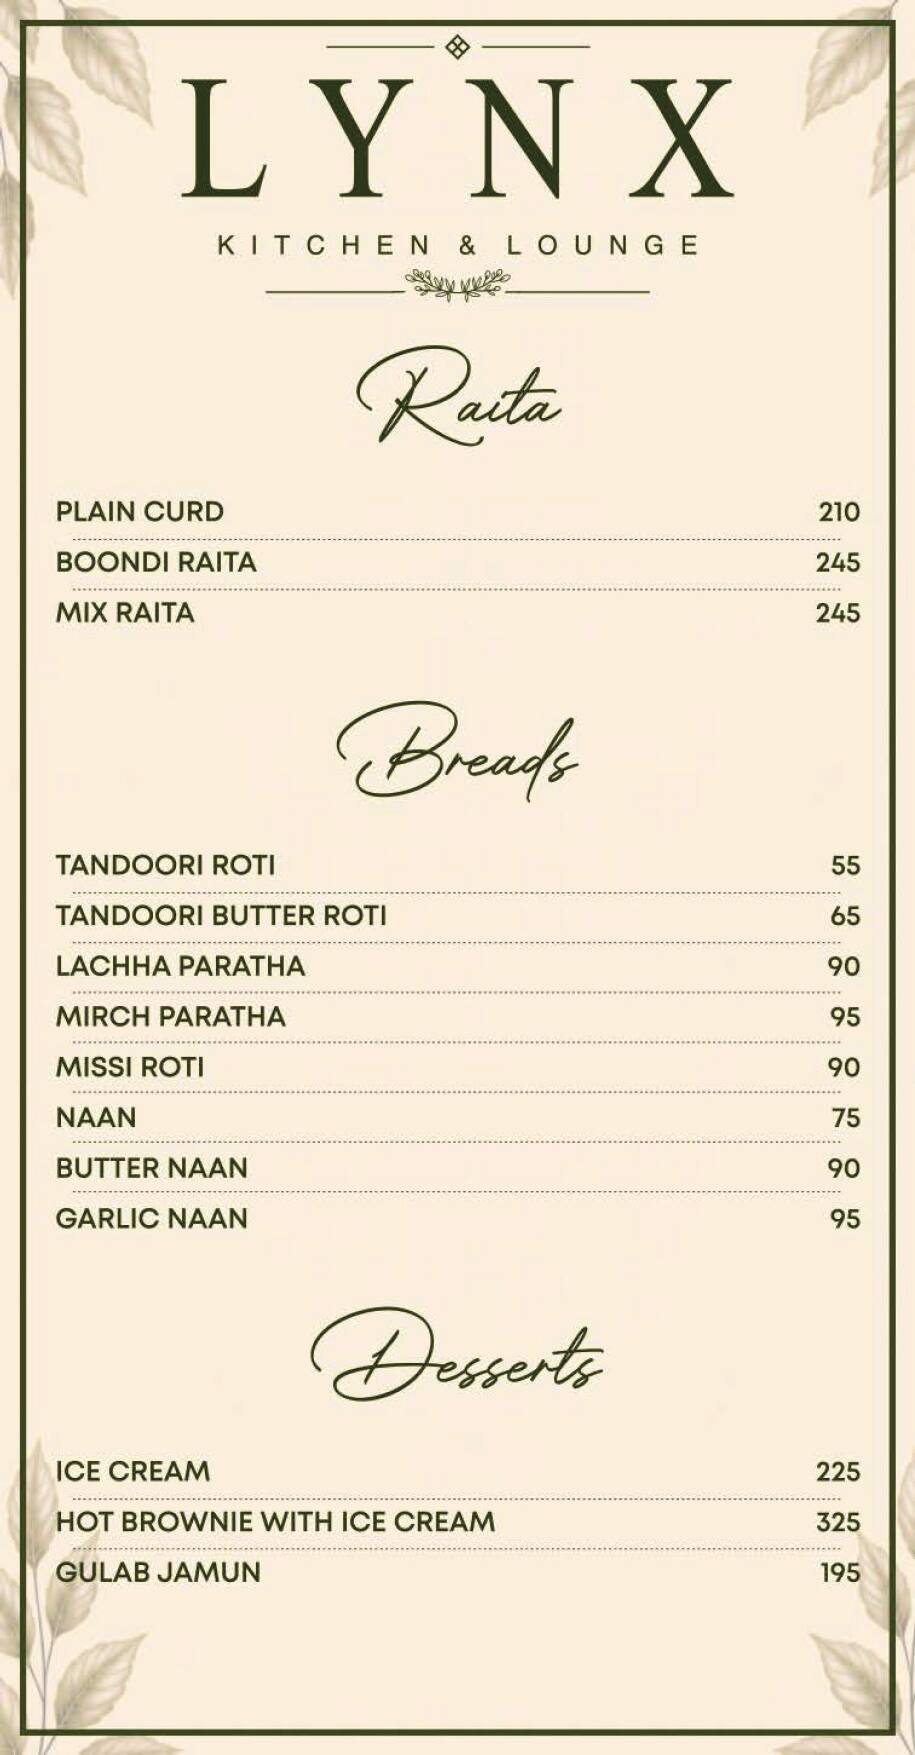 LYNX
KITCHEN & LOUNGE
Raita
PLAIN CURD 210
BOONDI RAITA 245
MIX RAITA 245
Breads
TANDOORI ROTI 55
TANDOORI BUTTER ROTI 65
LACHHA PARATHA 90
MIRCH PARATHA 95
MISSI ROTI 90
NAAN 75
BUTTER NAAN 90
GARLIC NAAN 95
Desserts
ICE CREAM 225
HOT BROWNIE WITH ICE CREAM 325
GULAB JAMUN 195